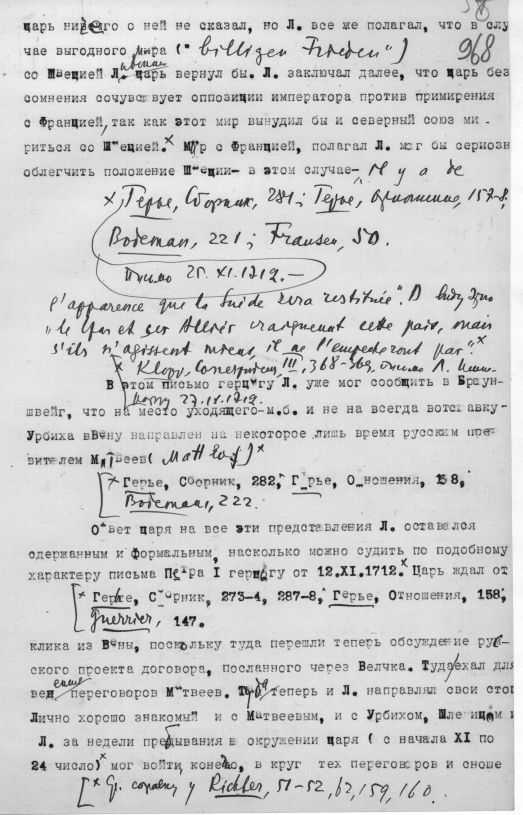 968
царь ничего о ней не сказал, но Л. все же полагал, что в слу
чае выгодного мира ( "billigen Frieden" )
со Швецией царь вернул бы. Л. заключал далее, что царь без
сомнения сочувствует оппозиции императора против примирения
с Францией, так как этот мир вынудил бы и северный союз ми-
риться со Швецией.x Мир с Францией, полагал Л. мог бы сериозн
облегчить положение Швеции- в этом случае- "il y a de
x Герье, Сборник, 281; Герье, Отношения, 157-8.
Bodeman, 221; Fransen, 50.
Письмо 25.XI.1712.—
l'apparence que la Suède sera restituée". В виду этого
"le Czar et ses Alliés craignent cette paix, mais
s'ils n'agissent mieux, il ne l'empecheront pas".x
x Klopp, Correspondenz, III, 368-369, письмо Л.
27.11.1712
В этом письмо герцогу Л. уже мог сообщить в Браун-
швейг, что на место уходящего-м.б. и не на всегда вотставку-
Урбиха вВену направлен на некоторое лишь время русским пре
вителем Матвеев ( Matthoof )x
[x Герье, Сборник, 282, Герье, Отношения, 158,
Bodeman, 222.
Ответ царя на все эти представления Л. оставался
сдержанным и формальным, насколько можно судить по подобному
характеру письма Петра I герцогу от 12.XI.1712.x Царь ждал от
[x Герье, Сборник, 273-4, 287-8, Герье, Отношения, 158,
Guerrier, 147.
клика из Вены, поскольку туда перешли теперь обсуждение рус
ского проекта договора, посланного через Велчка. Туда ехал для
ведения переговоров Матвеев. Туда теперь и Л. направлял свои сто
Лично хорошо знакомый и с Матвеевым, и с Урбихом, Шлейцем и
Л. за недели пребывания в окружении царя ( с начала XI по
24 число)x мог войти, конечно, в круг тех переговоров и сноше
[x Ср. справку у Richter, 51-52, 62, 159, 160.